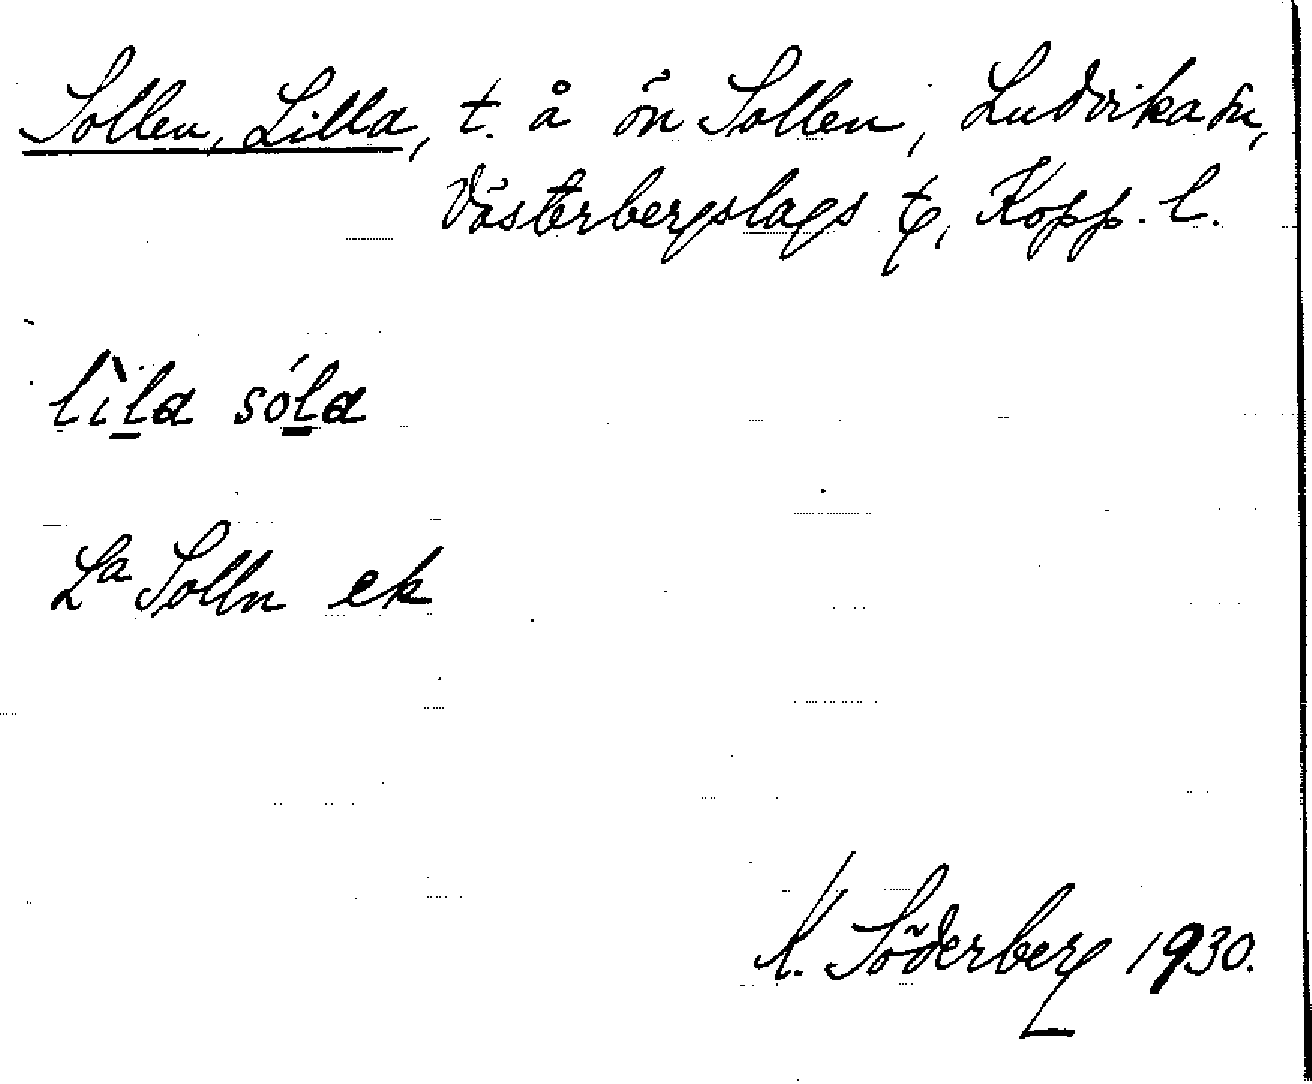 Sollen, Lilla, t. å ön Sollen, Ludvika sn,
Västerbergslags tg, Kopp. l.
lìla sóla
La Solln ek
K. Söderberg 1930.